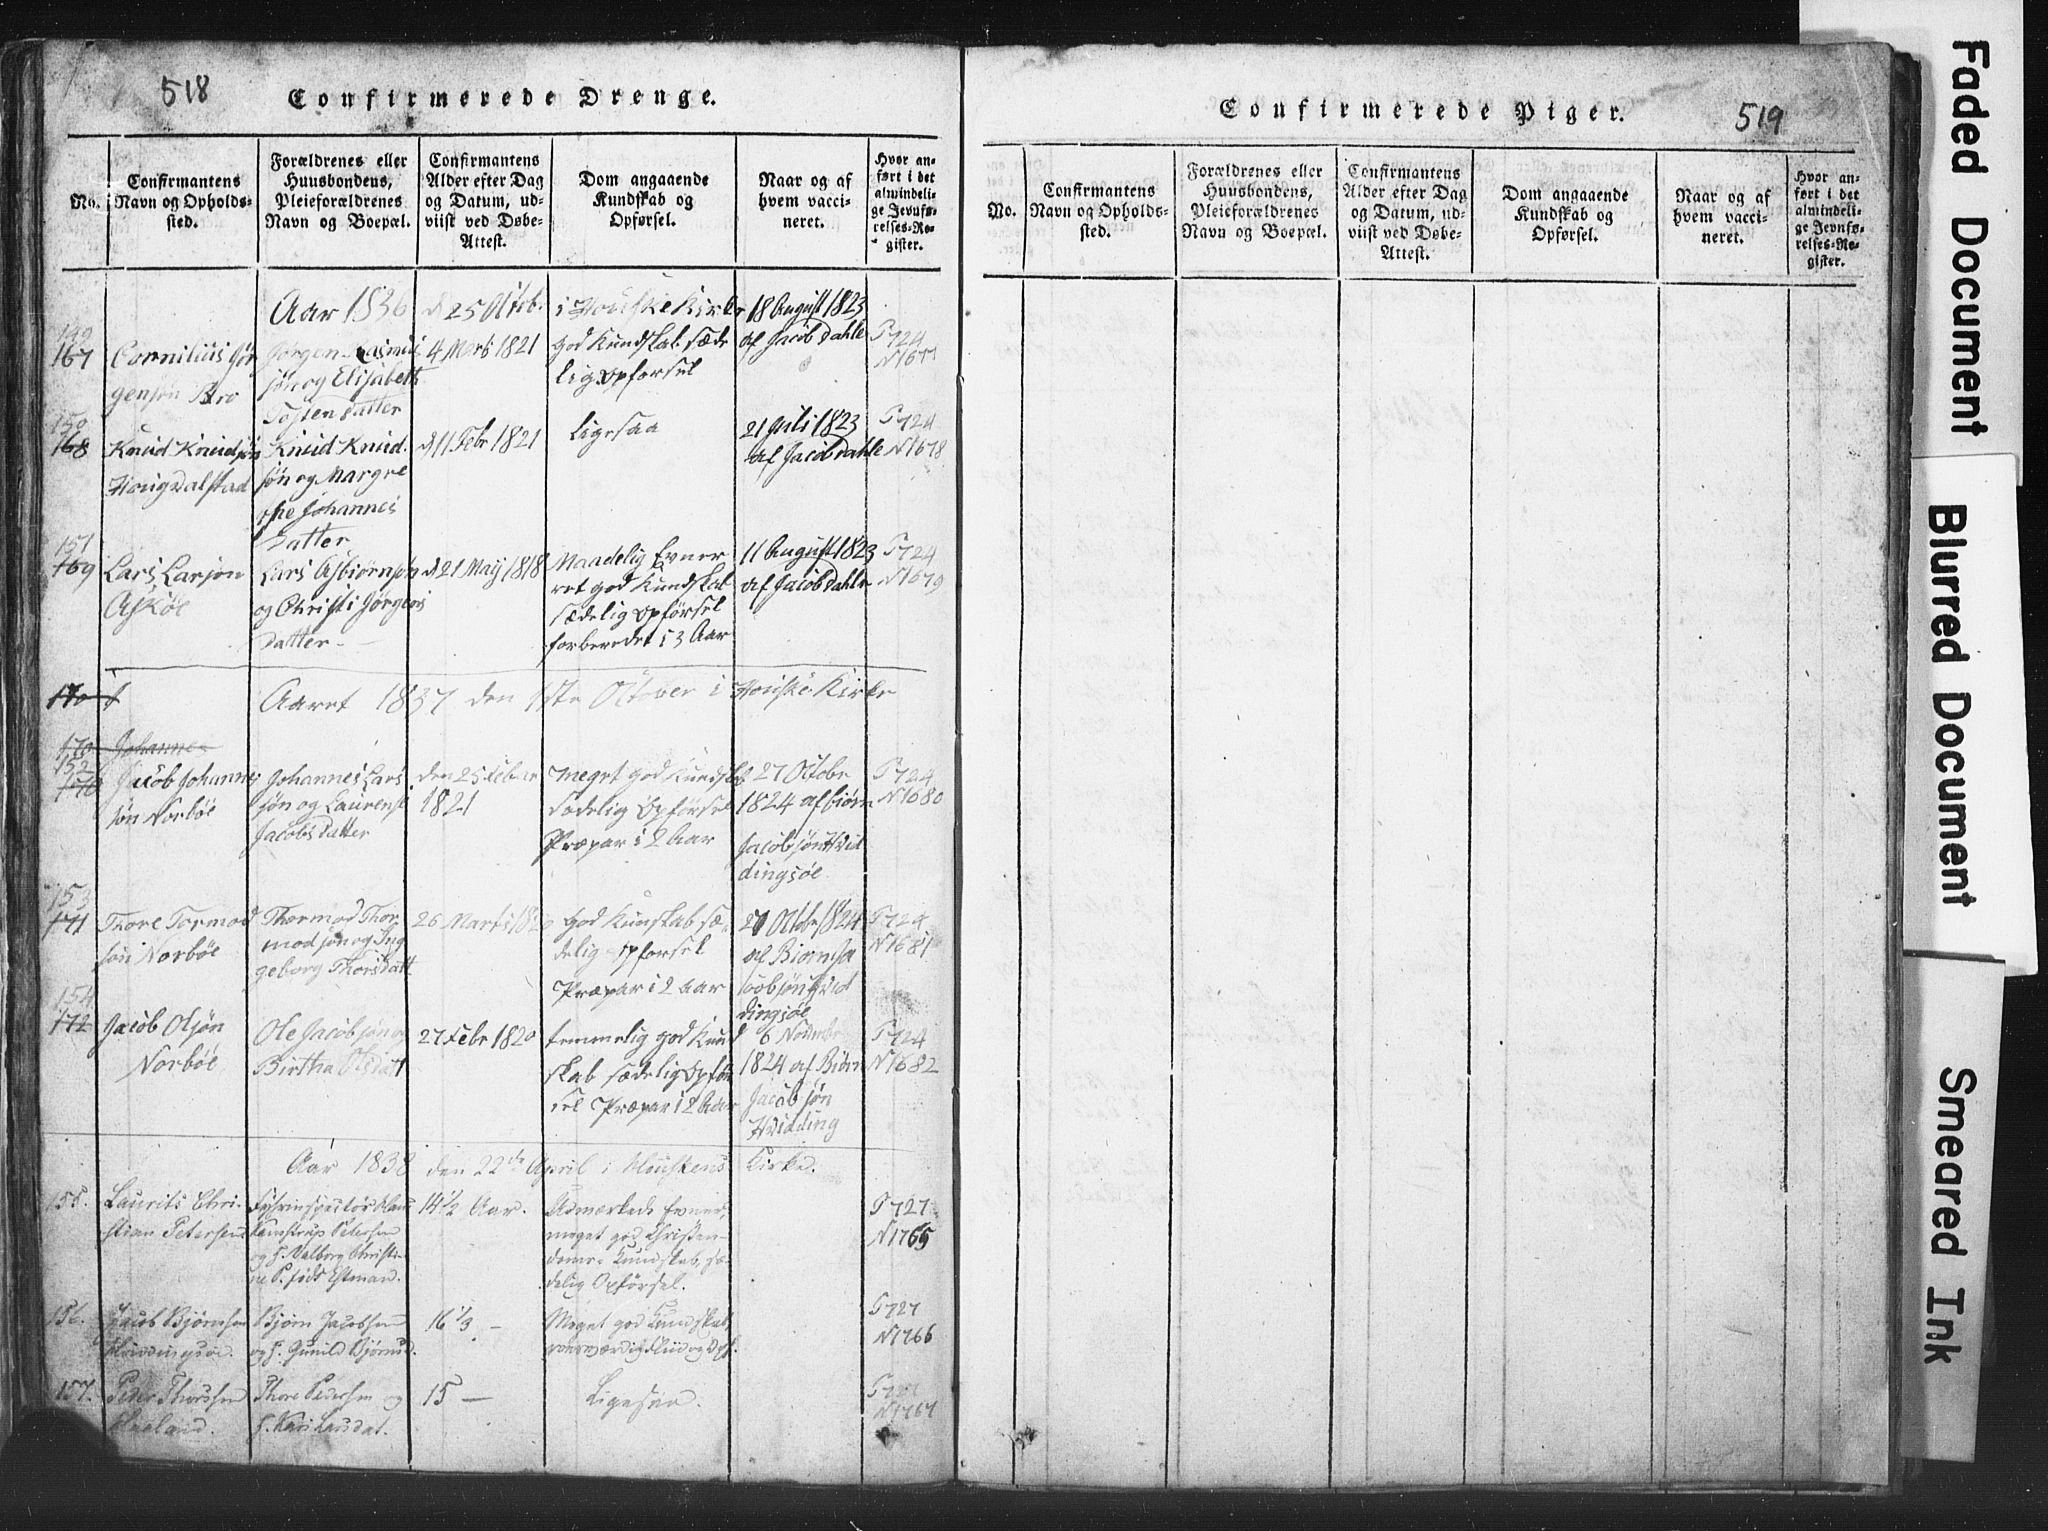 518
Confirmerede Drenge.
No.
Confirmantens
Navn og Opholds-
sted.
Forældrenes eller
Huusbondens,
Pleieforældrenes
Navn og Boepæl.
Confirmantens
Alder efter Dag
og Datum, ud-
viist ved Døbe-
Attest.
Dom angaaende
Kundskab og
Opførsel.
Naar og af
hvem vacci-
neret.
Hvor an-
ført i det
almindeli-
ge Jevnfø-
relses-Re-
gister.
Aar 1836 d 25 Octob. i Houske Kirke
149
167
Cornilius Jør
gensøn Bro
Jørgen Rasmus
søn og Elisabeth
Tosten Datter
4 Mert 1821
god Kundskab sæde
lig Opførsel
18 August 1823
af Jacob Dahle
P 724
N 1677
150
168
Knud Knudsøn
Hougdalstad
Knud Knud
søn og Margre
the Johannes
Datter
d 11 Febr 1821
Ligesaa
21 Juli 1823
af Jacob Dahle
P 724
N 1678
151
169
Lars Larson
Askøe
Lars Asbiørnsøn
og Christi Jørgens
Datter
d 21 Maij 1818
Maadelig Evner
ret god Kundskab
sædelig Opførsel
forberedet i 3 Aar
11 August 1823
af Jacob Dahle
P 724
N 1679
170
Aaret 1837 den 1ste October i Houske Kirke
170 Johannes
152
170
Jacob Johannes
søn Norbøe
Johannes Lars
søn og Laurense
Jacobs Datter
den 25 Febr
1821
Meget god Kundskab
sædelig Opførsel
Præpar i 2 Aar
27 Octobr
1824 af Biørn
Jacobsøn Hvid
dingsøe
P 724
N 1680
153
171
Thore Tormod
søn Norbøe
Thormod Thor
modsøn og Ing
geborg Thorsdatt
26 Marts 1820
God Kunskab sæ
delig Opførsel
Præpar i 2 Aar
27 Octobr 1824
af Biørn Ja
cobsøn Hvid
dingsøe
P 724
N 1681
154
172
Jacob Olsøn
Norbøe
Ole Jacobsøn og
Birtha Olsdatt
27 Febr 1820
temmelig god Kund
skab sædelig Opfør
sel Præpar i 2 Aar
6 Novmbr
1824 af Biørn
Jacobsøn
Hvidding
P 724
N 1682
Aar 1838 den 22de April i Houskens Kirke.
155.
Laurits Chri-
stian Petersen
Fyhrinspectør Claus
Kamstrup Petersen
og H. Valborg Christi-
ne P. føds Estman.
14 1/2 Aar.
Udmærkede Evner,
meget god Christen-
doms-Kundskab, sæ-
delig Opførsel.
P 727
N 1765
156.
Jacob Bjørnsen
Hvidingsøe.
Bjørn Jacobsen
og H. Gunild Bjørnsd.
16 1/3 —
Meget god Kundskab,
P 727
N 1766
157.
Peder Thorsen
Thore Pedersen og
H. Kari Larsdat.
15 —
Ligesaa.
P 727
N 1767
Confirmerede Piger.
519
No.
Confirmantens
Navn og Opholds-
sted.
Forældrenes eller
Huusbondens,
Pleieforældrenes
Navn og Boepæl.
Confirmantens
Alder efter Dag
og Datum, ud-
viist ved Døbe-
Attest.
Dom angaaende
Kundskab og
Opførsel.
Naar og af
hvem vacci-
neret.
Hvor an-
ført i det
almindeli-
ge Jevnfø-
relses-Re-
gister.
Faded Document
Blurred Document
Smeared Ink